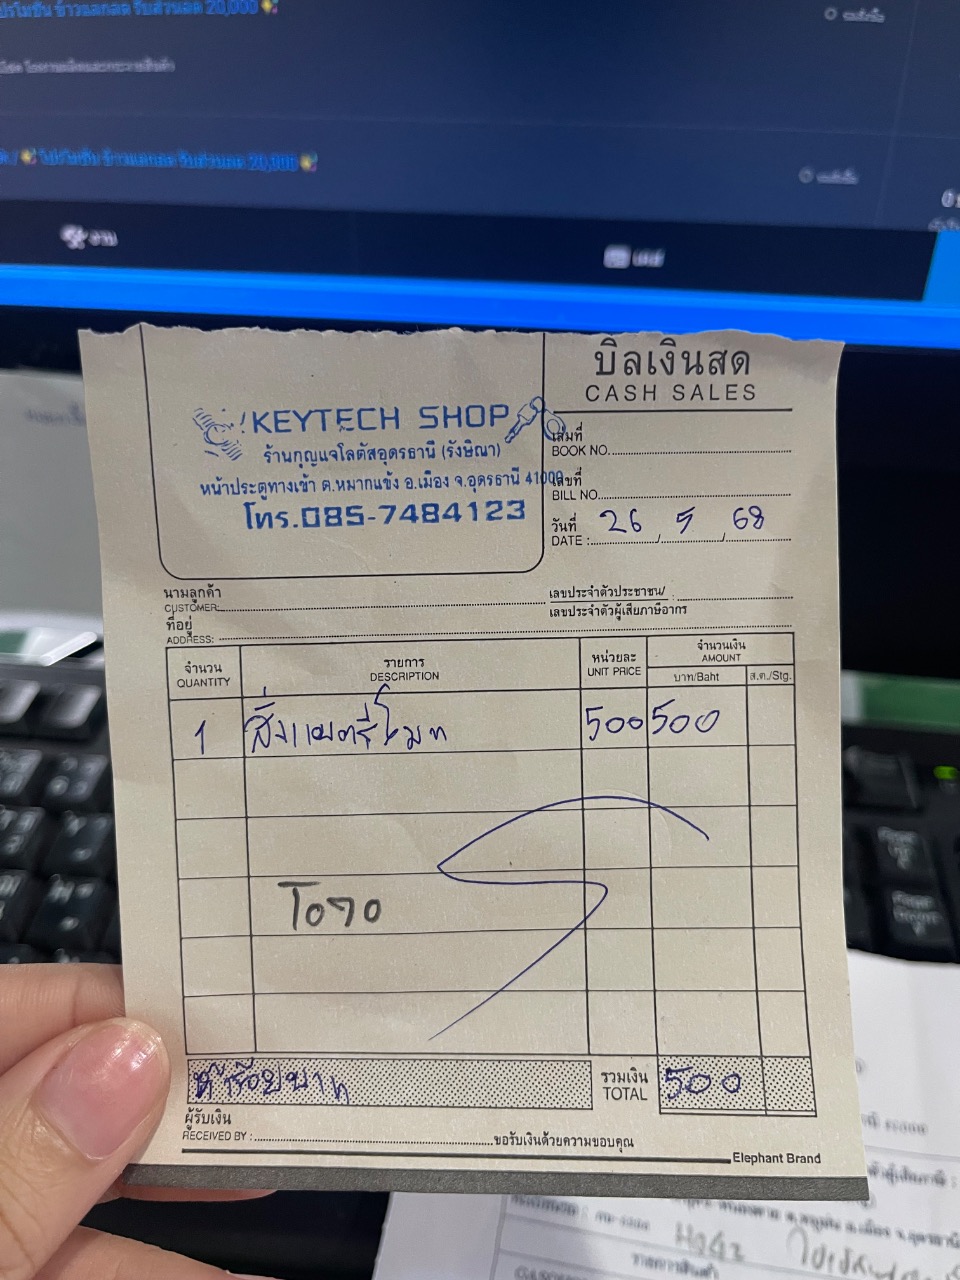 โปรโมชั่น ข้าวแลกลด รับส่วนลด 20,000
โปรโมชั่น ข้าวแลกลด รับส่วนลด 20,000
บิลเงินสด
CASH SALES
KEYTECH SHOP
ร้านกุญแจโลตัสอุดรธานี (รังษิณา)
หน้าประตูทางเข้า ต.หมากแข้ง อ.เมือง จ.อุดรธานี 41000
โทร.085-7484123
เล่มที่
BOOK NO.
เลขที่
BILL NO.
วันที่ 26 5 68
DATE : / /
นามลูกค้า
CUSTOMER:
เลขประจำตัวประชาชน/ :
เลขประจำตัวผู้เสียภาษีอากร
ที่อยู่
ADDRESS:
จำนวน รายการ หน่วยละ จำนวนเงิน
QUANTITY DESCRIPTION UNIT PRICE AMOUNT
บาท/Baht ส.ต./Stg.
1 500 500
ห้าร้อยบาท
รวมเงิน 500
TOTAL
ผู้รับเงิน
RECEIVED BY : ขอรับเงินด้วยความขอบคุณ
Elephant Brand